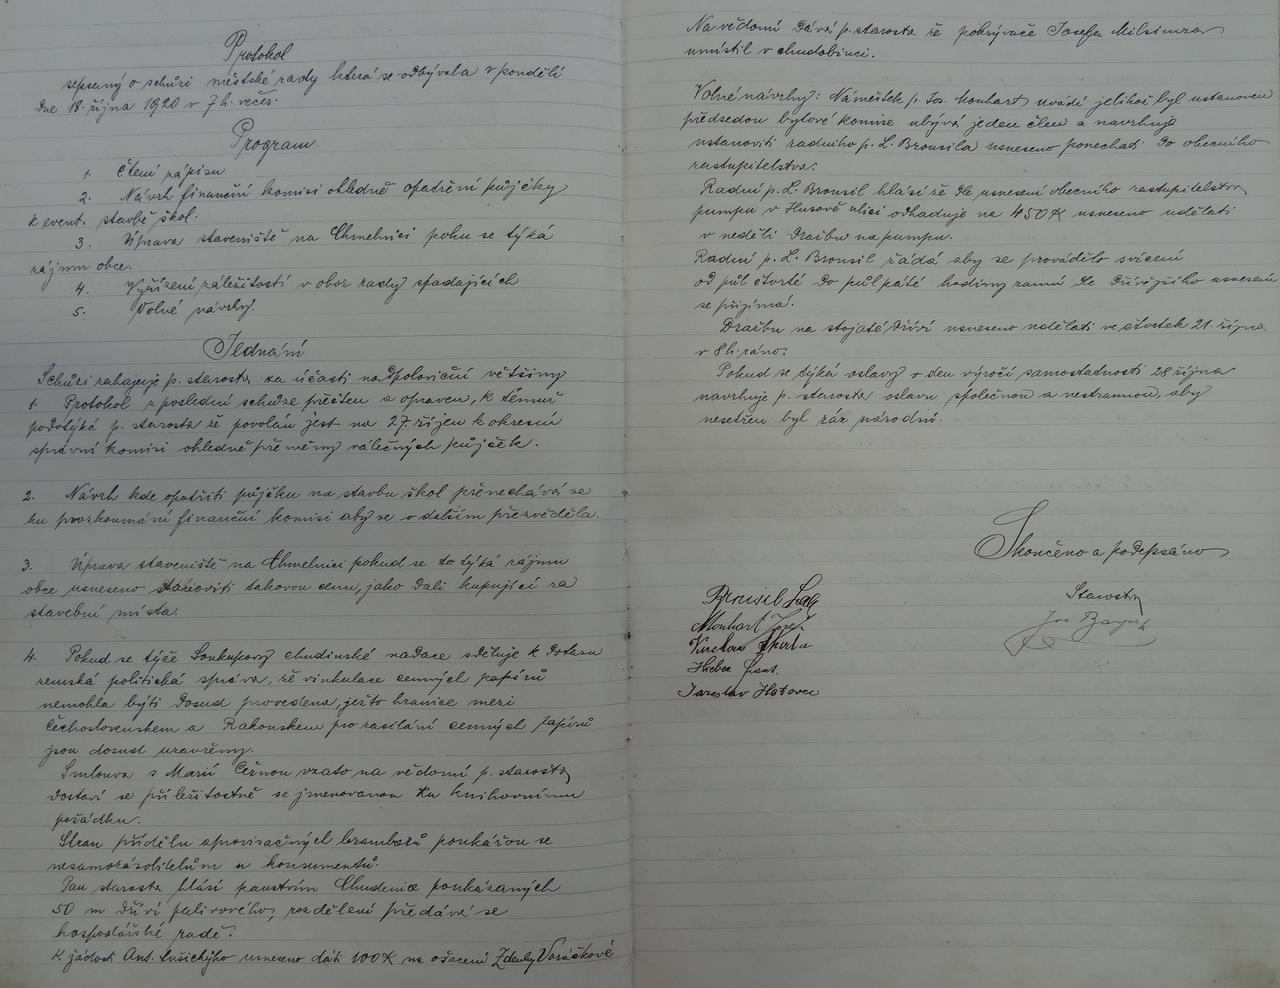 Protokol
sepsaný o schůzi městské rady která se odbývala v pondělí
dne 18. října 1920 v 7 h. večer.
Program
1. Čtení zápisu
2. Návrh finanční komisi ohledně opatření půjčky
k event. stavbě škol.
3. Úprava staveniště na Chmelnici poku se týká
zájmu obce.
4. Vyřízení záležitostí v obor rady spadajících
5. Volné návrhy.
Jednání
Schůzi zahajuje p. starosta za účasti nadpoloviční většiny
1. Protokol z poslední schůze přečten a opraven, k čemuž
podotýká p. starosta že povolán jest na 27 říjen k okresní
správní komisi ohledně přeměny válečných půjček.
2. Návrh kde opatřiti půjčku na stavbu škol přenechává se
ku prozkoumání finanční komisi aby se o dalším přezvěděla.
3. Úprava staveniště na Chmelnici pokud se to týká zájmu
obce usneseno stanoviti takovou cenu, jako dali kupující za
stavební místa.
4. Pokud se týče Soukupovy chudinské nadace sděluje k dotazu
zemská politická správa, že vinkulace cenných papírů
nemohla býti dosud provedena, ježto hranice mezi
Čechoslovenskem a Rakouskem pro zasílání cenných papírů
jsou dosud uzavřeny.
Smlouva s Marií Černou vzato na vědomí p. starosta
dostaví se příležitostně se jmenovanou ku knihovnímu
pořádku.
Stran přídělu aprovisačných bramborů poukážou se
nesamozásobitelům a konsumentů.
Pan starosta hlásí panstvím Chudenice poukázaných
50 m dříví palivového, rozdělení předává se
hospodářské radě.
K žádosti Ant. usneseno dáti 100 K na ošacení Zdenky Voráčkové
Na vědomí dává p. starosta že pokrývače Josefa
umístil v chudobinci.
Volné návrhy: Náměstek p. Jos. Monhart uvádí jelikož byl ustanoven
předsedou bytové komise ubývá jeden člen a navrhuje
ustanoviti radního p. L. Brousila usneseno ponechati do obecního
zastupitelstva.
Radní p. L. Brousil hlásí že dle usnesení obecního zastupitelstva
pumpu v Husově ulici odhaduje na 450 K usneseno udělati
v neděli dražbu na pumpu.
Radní p. L. Brousil žádá aby se provádělo svícení
od půl čtvrté do půl páté hodiny ranní dle dřívějšího usnesení
se přijímá.
Dražbu na stojaté dříví usneseno udělati ve čtvrtek 21. října
v 8 h. ráno.
Pokud se týká oslavy v den výročí samostatnosti 28 října
navrhuje p. starosta oslavu společnou a nestrannou, aby
nesetřen byl ráz národní.
Skončeno a podepsáno
Starosta
Brousil Lad.
Monhart Josef
Jaroslav